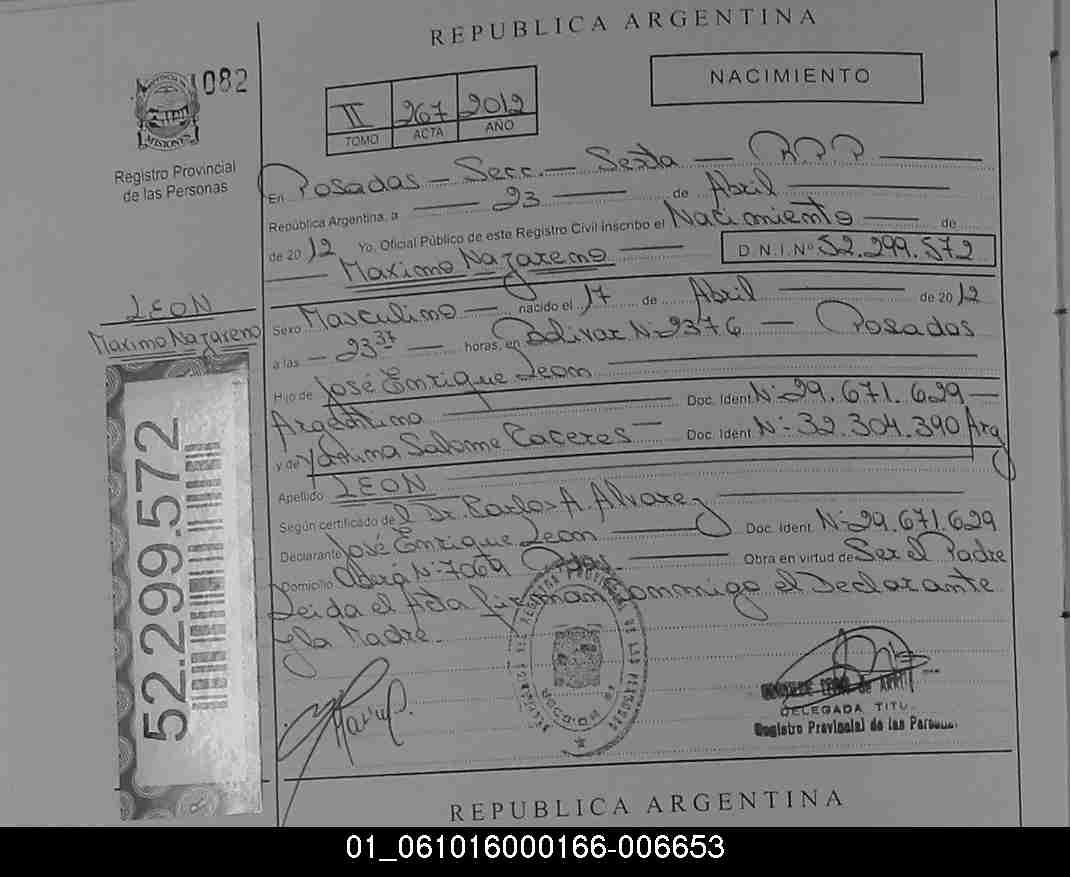 REPUBLICA ARGENTINA
1082
PROVINCIA DE
MISIONES
Registro Provincial
de las Personas
II 267 2012
TOMO ACTA AÑO
NACIMIENTO
En Posadas - Secc. - Sexta - RPP
República Argentina, a 23 de Abril
de 2012 Yo, Oficial Público de este Registro Civil inscribo el Nacimiento de
Maximo Nazareno D.N.I.Nº 52.299.572
Sexo Masculino - nacido el 17 de Abril de 2012
a las - 23 37 - horas, en Bolivar Nº 2376 - Posadas
Hijo de José Enrique Leon
Argentino Doc. Ident. Nº 29.671.629 -
y de Salome Caceres - Doc. Ident Nº 32.304.390 Arg
Apellido LEON
Según certificado del Dr. Carlos A. Alvarez
Declarante José Enrique Leon Doc. Ident. Nº 29.671.629
Domicilio Oberá Nº 7069 Obra en virtud de Ser el Padre
Leida el Acta firman conmigo el Declarante
y la Madre.
LEON
Maximo Nazareno
52.299.572
DELEGADA TITU
Registro Provincial de las Personas
REPUBLICA ARGENTINA
01_061016000166-006653